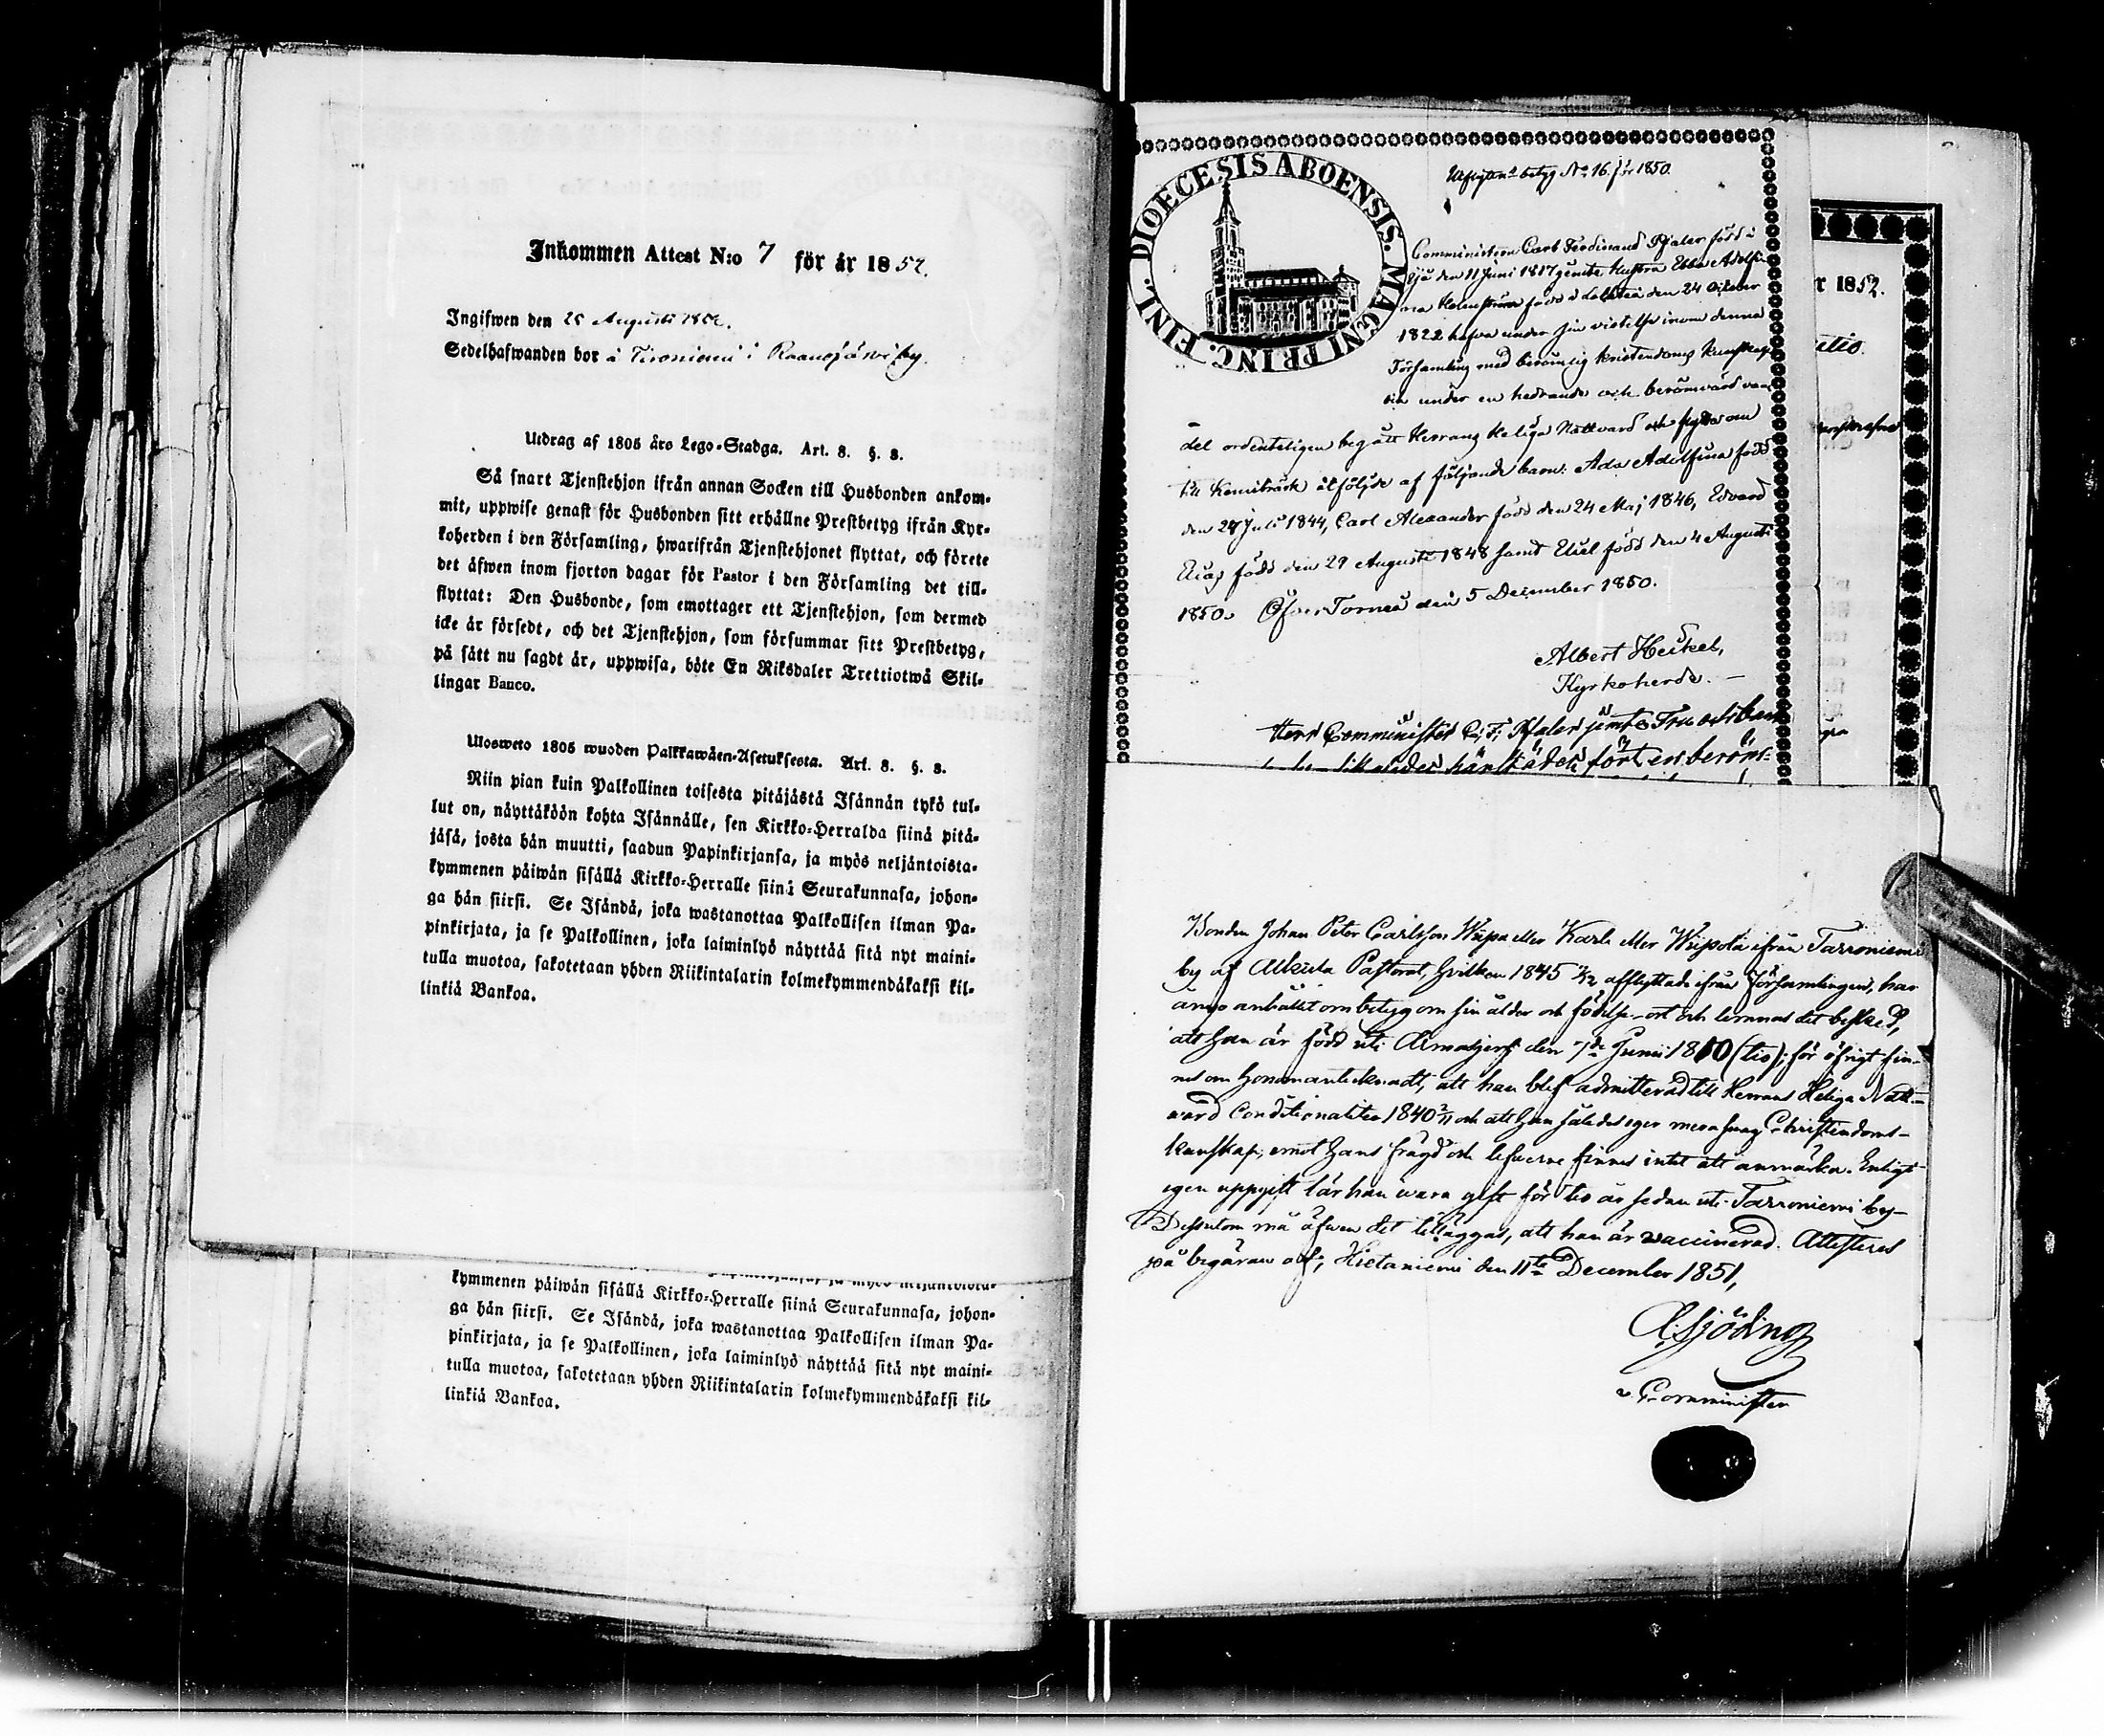 Inkommen Attest N:o 7 för år 1852.
Ingifwen den 25 Augusti 1852.
Sedelhafwanden bor å Tironiemi i Raanojärwi by.
Utdrag af 1805 års Lego-Stadga. Art. 8. §. 8.
Så snart Tjenstehjon ifrån annan Socken till Husbonden ankom-
mit, uppwise genast för Husbonden sitt erhållne Prestbetyg ifrån Kyr-
koherden i den Församling, hwarifrån Tjenstehjonet flyttat, och förete
det äfwen inom fjorton dagar för Pastor i den Församling det till-
flyttat: Den Husbonde, som emottager ett Tjenstehjon, som dermed
icke är försedt, och det Tjenstehjon, som försummar sitt Prestbetyg,
på sätt nu sagdt är, uppwisa, böte En Riksdaler Trettiotwå Skil-
lingar Banco.
Ulosweto 1805 wuoden Palkkawäen-Asetuksesta. Art. 8. §. 8.
Niin pian kuin Palkollinen toisesta pitäjästä Isännän tykö tul-
lut on, näyttäköön kohta Isännälle, sen Kirkko-Herralda siinä pitä-
jäsä, josta hän muutti, saadun Papinkirjansa, ja myös neljäntoista-
kymmenen päiwän sisällä Kirkko-Herralle siinä Seurakunnasa, johon-
ga hän siirsi. Se Isändä, joka wastanottaa Palkollisen ilman Pa-
pinkirjata, ja se Palkollinen, joka laiminlyö näyttää sitä nyt maini-
tulla muotoa, sakotetaan yhden Riikintalarin kolmekymmendäkaksi kil-
linkiä Bankoa.
kymmenen päiwän sisällä Kirkko-Herralle siinä Seurakunnasa, johon-
ga hän siirsi. Se Isändä, joka wastanottaa Palkollisen ilman Pa-
pinkirjata, ja se Palkollinen, joka laiminlyö näyttää sitä nyt maini-
tulla muotoa, sakotetaan yhden Riikintalarin kolmekymmendäkaksi kil-
linkiä Bankoa.
DIOECESIS ABOENSIS. MAGNI PRINC. FINL.
betyg No 16 för 1850.
Communistern Carl Ferdinand Pfaler född i
den 11 Juni 1817 jemte Hustru Ebba Adolfi-
na Holmström född i den 24 October
1822 hafva under sin vistelse inom denna
Församling med berömlig kristendoms kunskap
under en hedrande och berömvärd van-
del ordenteligen begått Herrans Heliga Nattvard och flytta om
till Kemiträsk åtföljde af följande barn: Ada Adolfina född
den 27 Juli 1844, Carl Alexander född den 24 Maj 1846, Edvard
Elias född den 29 Augusti 1848 samt Eliel född den 4 Augusti
1850. Öfver Torneå den 5 December 1850.
Albert Heikel,
Kyrkoherde.
Herr Comminister C. F. Pfaler jemte Fru och barn
härstädes fört en beröm-
r 1852.
Bonden Johan Peter Carlsson Wiipa eller Karls eller Wiipola ifrån Tarroniemi
by af Alkula Pastorat, hvilken 1845 afflyttade ifrån Församlingen, har
ånyo anhållit om betyg om sin ålder och födelse-ort och lemnas det besked,
att han är född uti Armasjerf den 7de Junii 1810 (tio); för öfrigt fin-
nes om honom antecknadt, att han blef admitterad till Herrans Heliga Natt-
ward Conditionaliter 1840 och att han således eger mera swag Christendoms-
kunskap; emot hans frägd och lefwerne finnes intet att anmärka. Enligt
egen uppgift lär han wara gift för tio år sedan uti Tarroniemi by-
Dessutom må äfwen det tilläggas, att han är vaccinerad. Attesteras
på begäran af; Hietaniemi den 11te December 1851,
A. Sjöding
v. Comminister